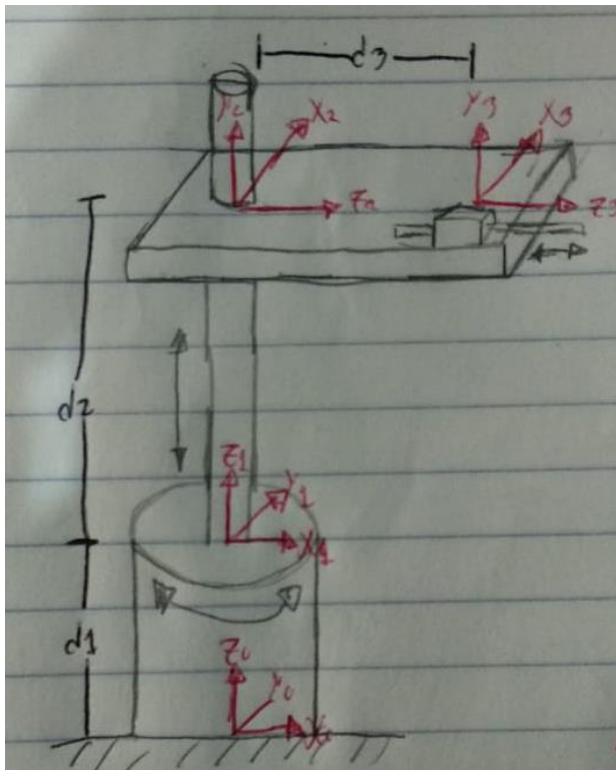 d3
Y2 X2 Y3 X3
Z2 Z3
d2
Z1 Y1
X1
d1
Z0 Y0
X0